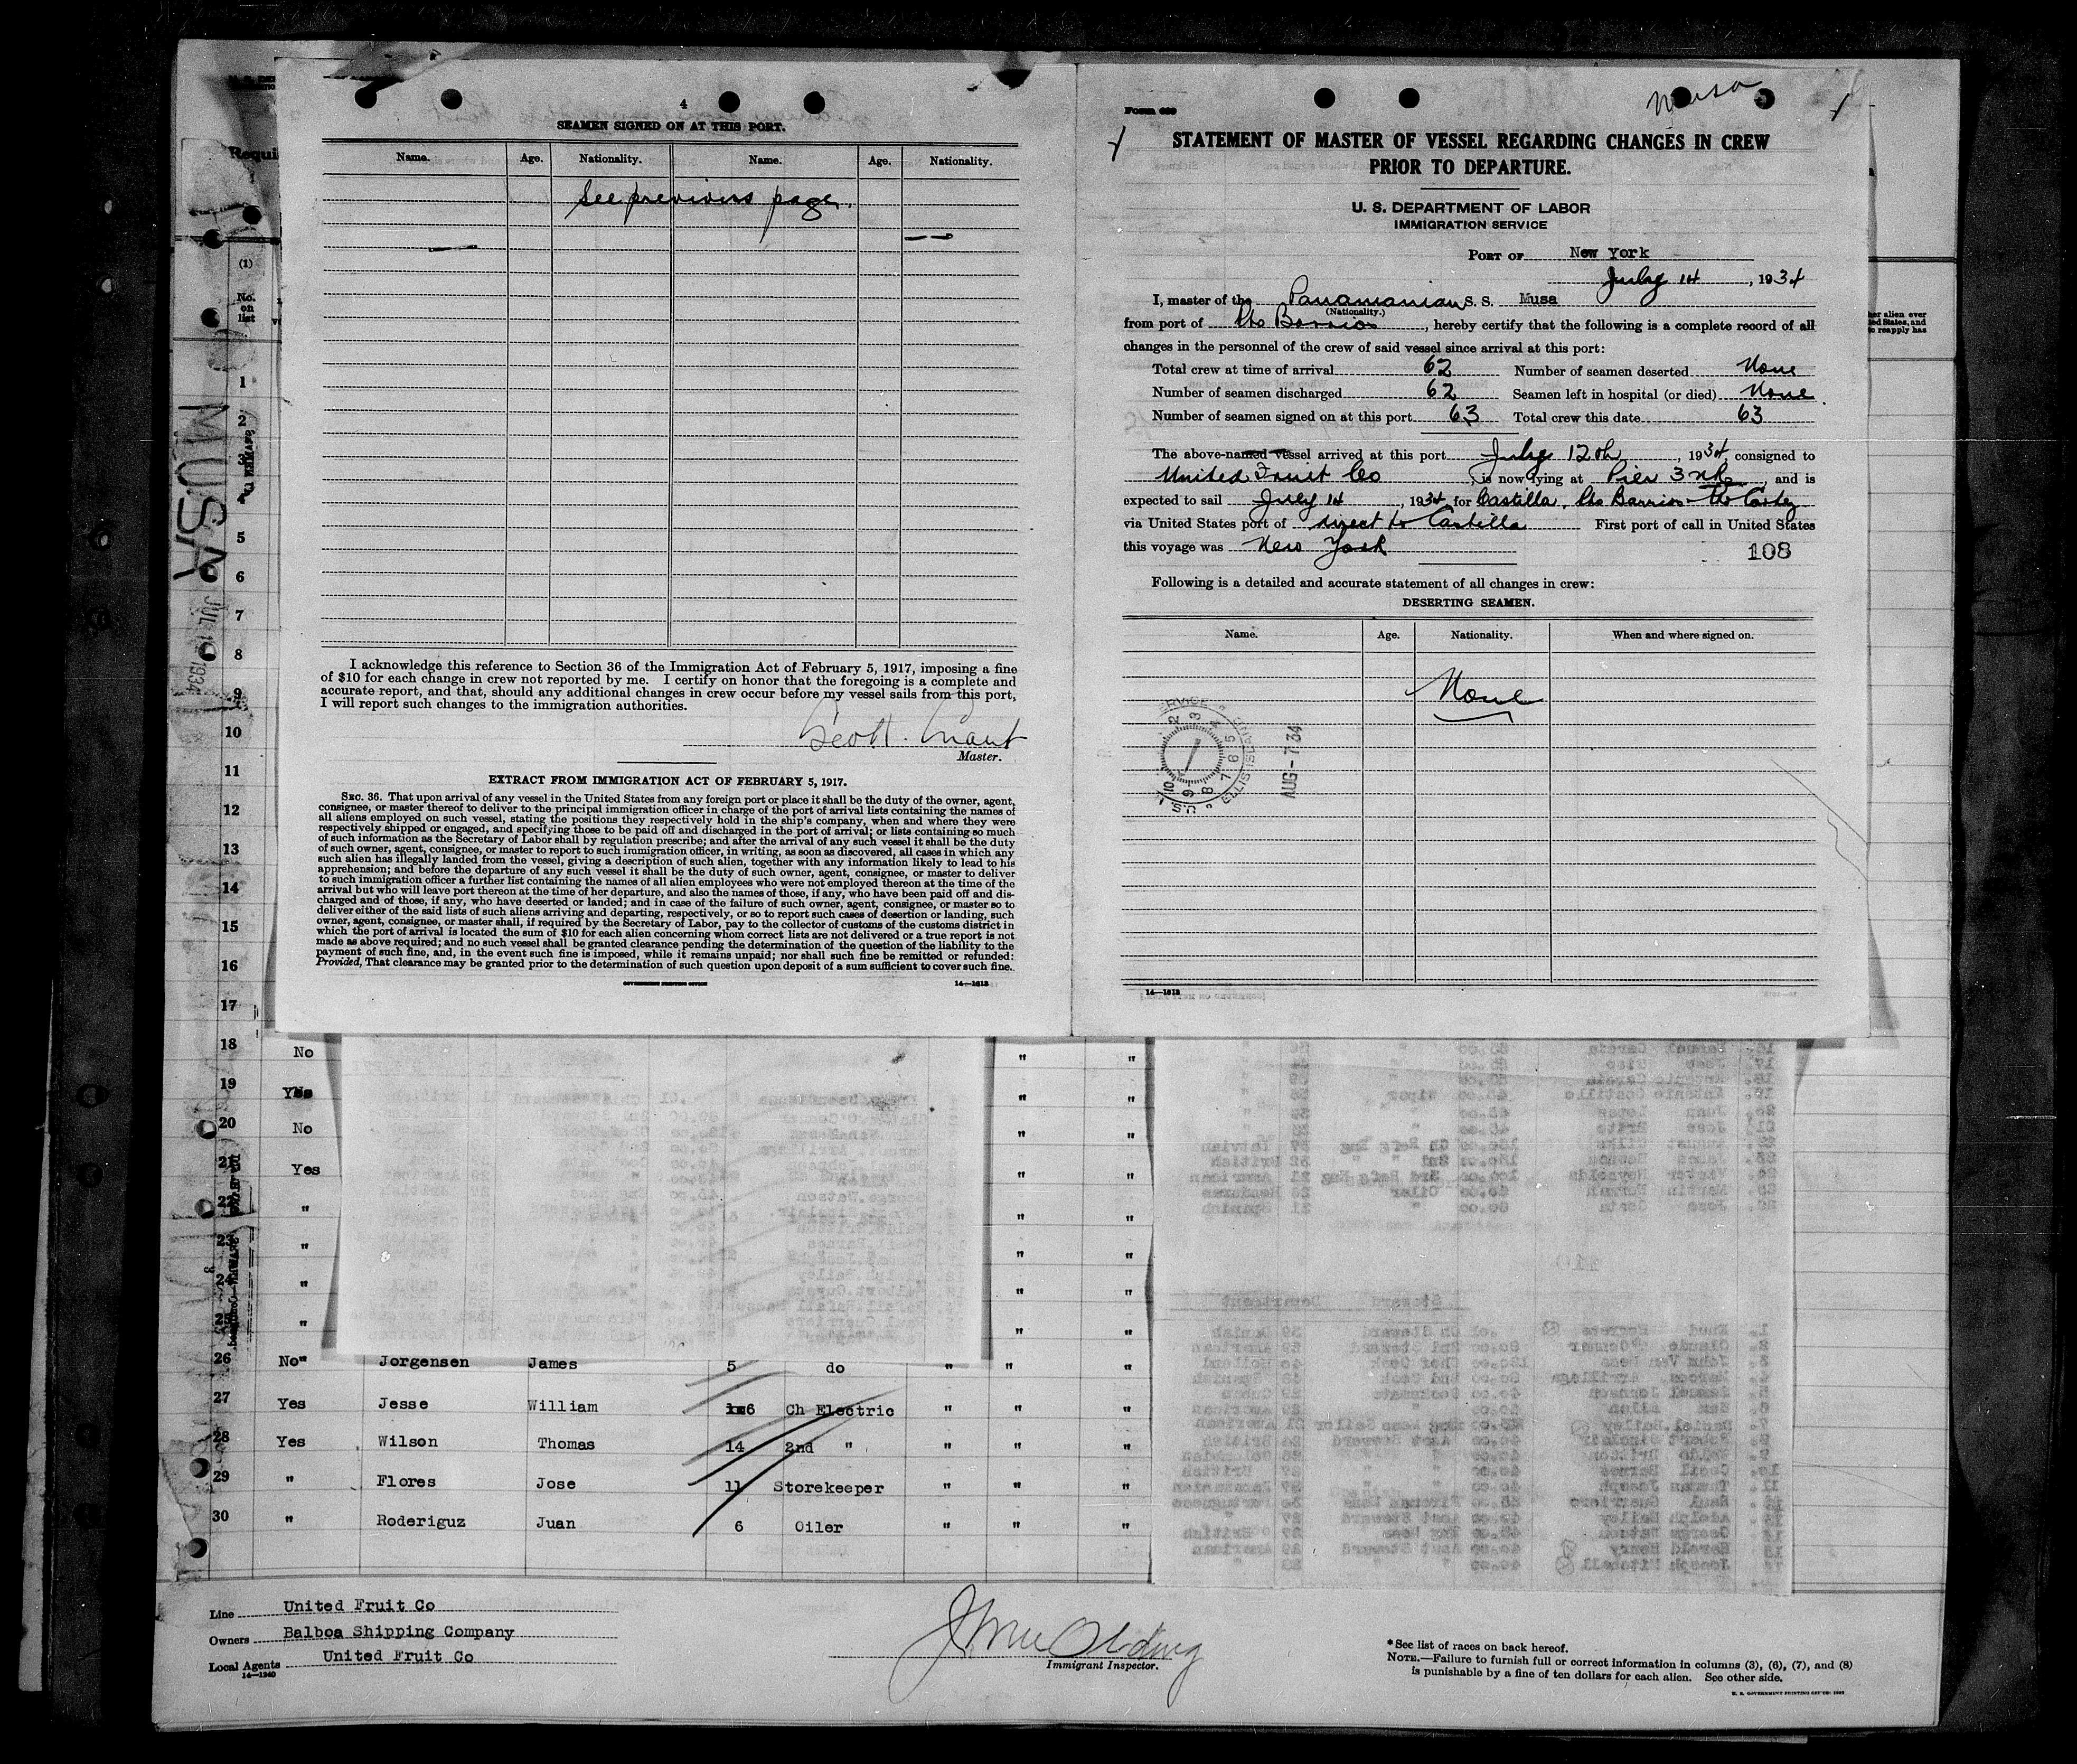 4
SEAMEN SIGNED ON AT THIS PORT.
Name. Age. Nationality. Name. Age. Nationality.
See previous page.
I acknowledge this reference to Section 36 of the Immigration Act of February 5, 1917, imposing a fine
of $10 for each change in crew not reported by me. I certify on honor that the foregoing is a complete and
accurate report, and that, should any additional changes in crew occur before my vessel sails from this port,
I will report such changes to the immigration authorities.
Scott
Master.
EXTRACT FROM IMMIGRATION ACT OF FEBRUARY 5, 1917.
SEC. 36. That upon arrival of any vessel in the United States from any foreign port or place it shall be the duty of the owner, agent,
consignee, or master thereof to deliver to the principal immigration officer in charge of the port of arrival lists containing the names of
all aliens employed on such vessel, stating the positions they respectively hold in the ship's company, when and where they were
respectively shipped or engaged, and specifying those to be paid off and discharged in the port of arrival; or lists containing so much
of such information as the Secretary of Labor shall by regulation prescribe; and after the arrival of any such vessel it shall be the duty
of such owner, agent, consignee, or master to report to such immigration officer, in writing, as soon as discovered, all cases in which any
such alien has illegally landed from the vessel, giving a description of such alien, together with any information likely to lead to his
apprehension; and before the departure of any such vessel it shall be the duty of such owner, agent, consignee, or master to deliver
to such immigration officer a further list containing the names of all alien employees who were not employed thereon at the time of the
arrival but who will leave port thereon at the time of her departure, and also the names of those, if any, who have been paid off and dis-
charged and of those, if any, who have deserted or landed; and in case of the failure of such owner, agent, consignee, or master so to
deliver either of the said lists of such aliens arriving and departing, respectively, or so to report such cases of desertion or landing, such
owner, agent, consignee, or master shall, if required by the Secretary of Labor, pay to the collector of customs of the customs district in
which the port of arrival is located the sum of $10 for each alien concerning whom correct lists are not delivered or a true report is not
made as above required; and no such vessel shall be granted clearance pending the determination of the question of the liability to the
payment of such fine, and, in the event such fine is imposed, while it remains unpaid; nor shall such fine be remitted or refunded:
Provided, That clearance may be granted prior to the determination of such question upon deposit of a sum sufficient to cover such fine.
GOVERNMENT PRINTING OFFICE 14—1613
Musa
STATEMENT OF MASTER OF VESSEL REGARDING CHANGES IN CREW
PRIOR TO DEPARTURE.
U. S. DEPARTMENT OF LABOR
IMMIGRATION SERVICE
PORT OF New York
July 14, 1934
I, master of the Panamanian S. S. Musa
(Nationality.)
from port of Pto Barrios, hereby certify that the following is a complete record of all
changes in the personnel of the crew of said vessel since arrival at this port:
Total crew at time of arrival 62 Number of seamen deserted None
Number of seamen discharged 62 Seamen left in hospital (or died) None.
Number of seamen signed on at this port 63 Total crew this date 63
The above-named vessel arrived at this port July 12th, 1934, consigned to
United Fruit Co, is now lying at Pier 3 , and is
expected to sail July 14, 1934 for Castilla, Pto Barrios - Pto Cortez
via United States port of direct to Castilla First port of call in United States
this voyage was New York
108
Following is a detailed and accurate statement of all changes in crew:
DESERTING SEAMEN.
Name. Age. Nationality. When and where signed on.
None
ELLIS ISLAND
AUG - 7 34
14—1613
Requi
(1)
No.
on
list
MUSA
1934
1
2
3
4
5
6
7
8
9
10
11
12
13
14
15
16
17
18 No " "
19 Yes " "
20 No " "
21 Yes " "
22 " " "
23 " " "
24 " " "
25 " " "
26 No" Jorgensen James 5 do " " "
27 Yes Jesse William 6 Ch Electric " " "
28 Yes Wilson Thomas 14 2nd " " " "
29 " Flores Jose 11 Storekeeper " " "
30 " Roderiguz Juan 6 Oiler " " "
Line United Fruit Co
Owners Balboa Shipping Company
Local Agents United Fruit Co
14—1240
Immigrant Inspector.
*See list of races on back hereof.
NOTE.—Failure to furnish full or correct information in columns (3), (6), (7), and (8)
is punishable by a fine of ten dollars for each alien. See other side.
her alien ever
ted States, and
to reapply has